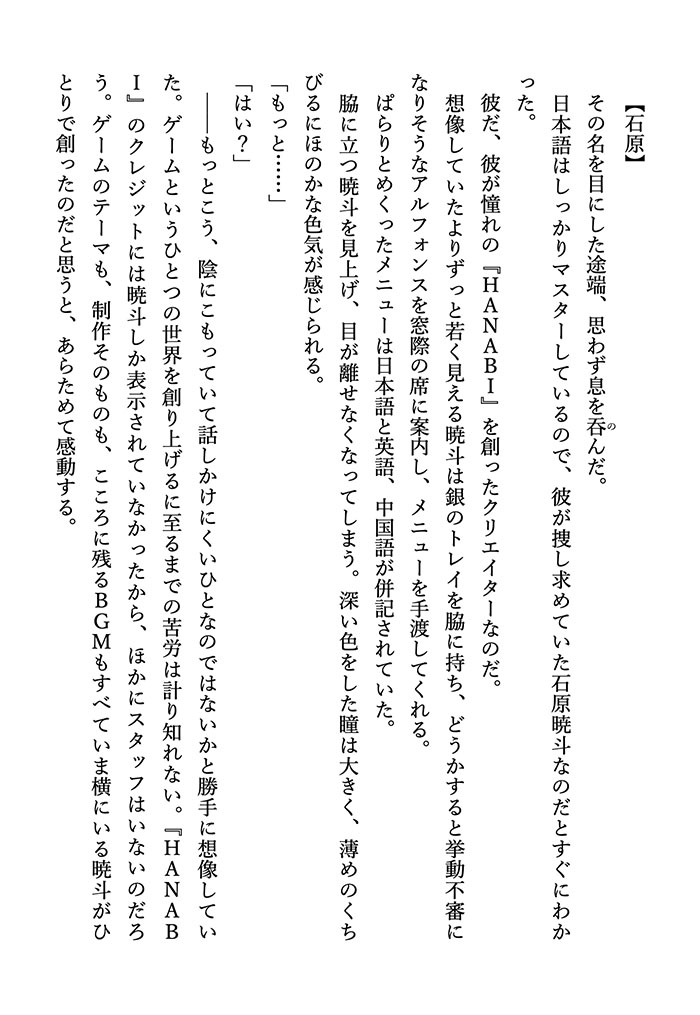 【石原】
その名を目にした途端、思わず息を呑んだ。
日本語はしっかりマスターしているので、彼が捜し求めていた石原暁斗なのだとすぐにわか
った。
彼だ、彼が憧れの『ＨＡＮＡＢＩ』を創ったクリエイターなのだ。
想像していたよりずっと若く見える暁斗は銀のトレイを脇に持ち、どうかすると挙動不審に
なりそうなアルフォンスを窓際の席に案内し、メニューを手渡してくれる。
ぱらりとめくったメニューは日本語と英語、中国語が併記されていた。
脇に立つ暁斗を見上げ、目が離せなくなってしまう。深い色をした瞳は大きく、薄めのくち
びるにほのかな色気が感じられる。
「もっと……」
「はい？」
――もっとこう、陰にこもっていて話しかけにくいひとなのではないかと勝手に想像してい
た。ゲームというひとつの世界を創り上げるに至るまでの苦労は計り知れない。『ＨＡＮＡＢ
Ｉ』のクレジットには暁斗しか表示されていなかったから、ほかにスタッフはいないのだろ
う。ゲームのテーマも、制作そのものも、こころに残るＢＧＭもすべていま横にいる暁斗がひ
とりで創ったのだと思うと、あらためて感動する。